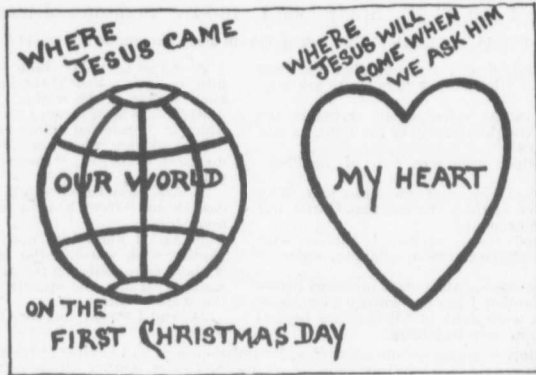 WHERE
JESUS CAME
OUR WORLD
ON THE
FIRST CHRISTMAS DAY
WHERE
JESUS WILL
COME WHEN
WE ASK HIM
MY HEART